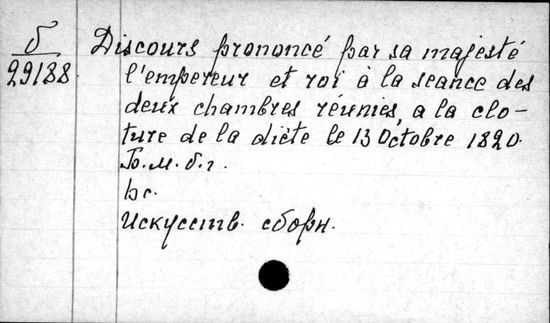 б
29188
Discours prononcé par sa majesté
l'empereur et roi à la seance des
deux chambres réunies, a la clo-
ture de la diète le 13 Octobre 1820.
Б.м.б.г.
bc.
Искусств. сборн.